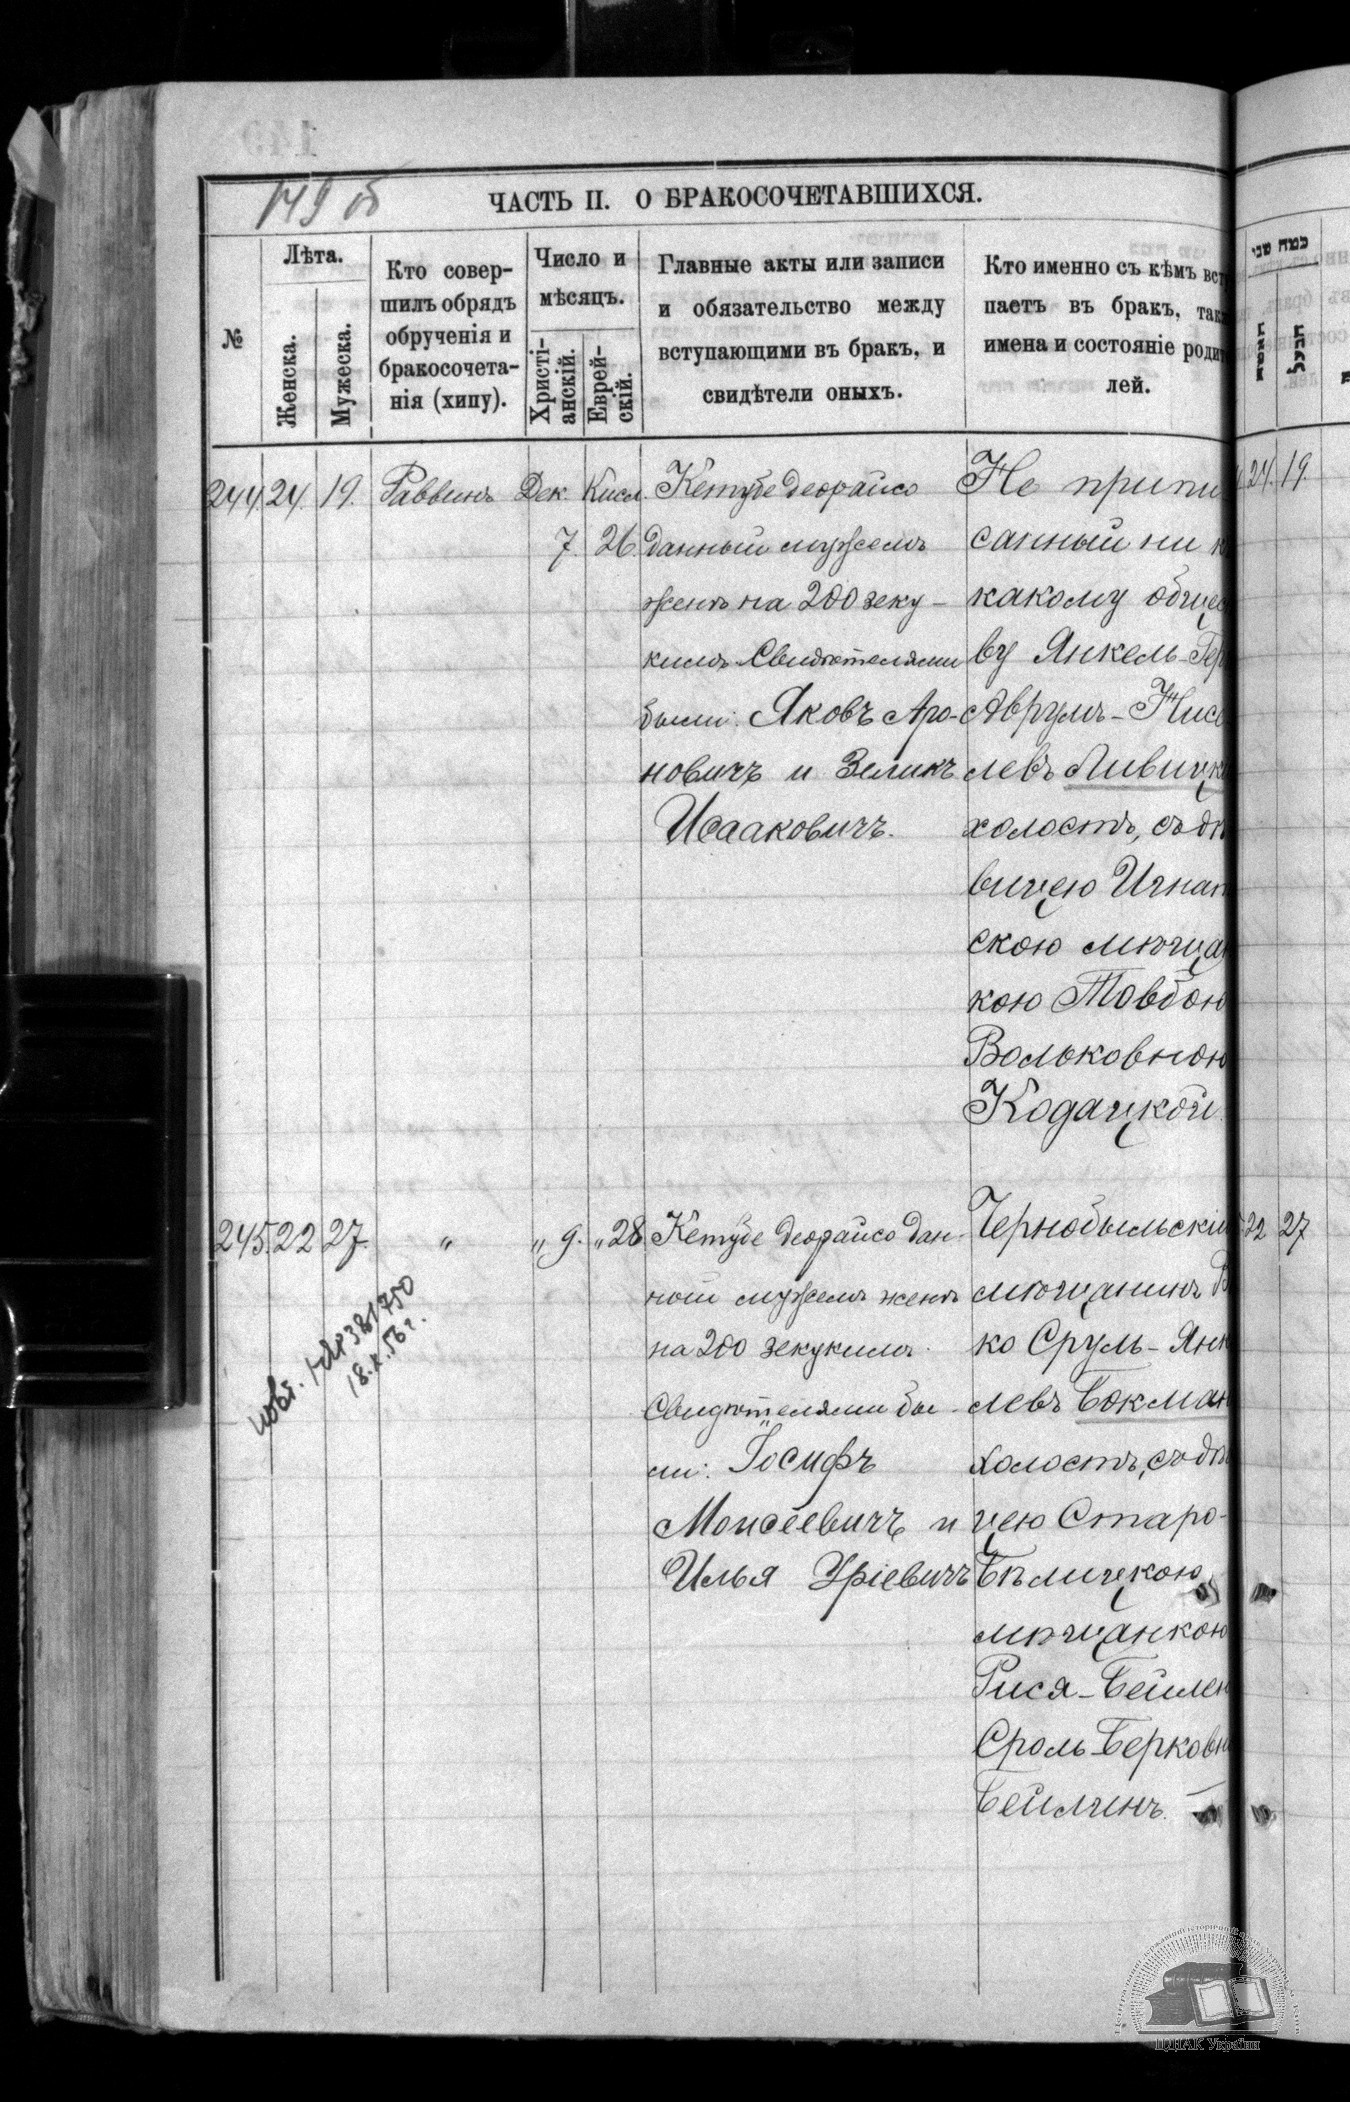 149 об
ЧАСТЬ II. О БРАКОСОЧЕТАВШИХСЯ.
№
Лѣта.
Женска.
Мужеска.
Кто совер-
шилъ обрядъ
обрученія и
бракосочета-
нія (хипу).
Число и
мѣсяцъ.
Христі-
анскій.
Еврей-
скій.
Главные акты или записи
и обязательство между
вступающими въ бракъ, и
свидѣтели оныхъ.
Кто именно съ кѣмъ всту
паетъ въ бракъ, такж
имена и состояніе родит
лей.
כמה שני
האשה
הבעל
244. 24. 19. Раввинъ Дек. Кисл.
7. 26.
Кетубе деорайсо
данный мужемъ
женѣ на 200 зеку-
кимъ. Свидѣтелями
были: Яковъ Аро-
новичъ и Зеликъ
Исааковичъ.
Не припи
санный ни к
какому общес
ву Янкель-Гер
Аврумъ-Нисе
левъ Ливицк
холостъ, съ дѣ
вицею Игнат
скою мѣщан
кою Товбою
Вольковною
Кодацкой.
24. 19.
245. 22 27. " " 9. " 28
Кетубе деорайсо дан-
ный мужемъ женѣ
на 200 зекукимъ.
Свидѣтелями бы-
ли: Іосифъ
Моисеевичъ и
Илья Уріевичъ
Чернобыльскій
мѣщанинъ Б
ко Сруль-Янк
левъ Бокман
холостъ, съ дѣв
цею Старо-
Бѣлицкою
мѣщанкою
Рися-Бейлею
Сроль-Берковн
Бейлинъ.
22 27
повт. 381750
18.X.56 г.
ЦДІАК України